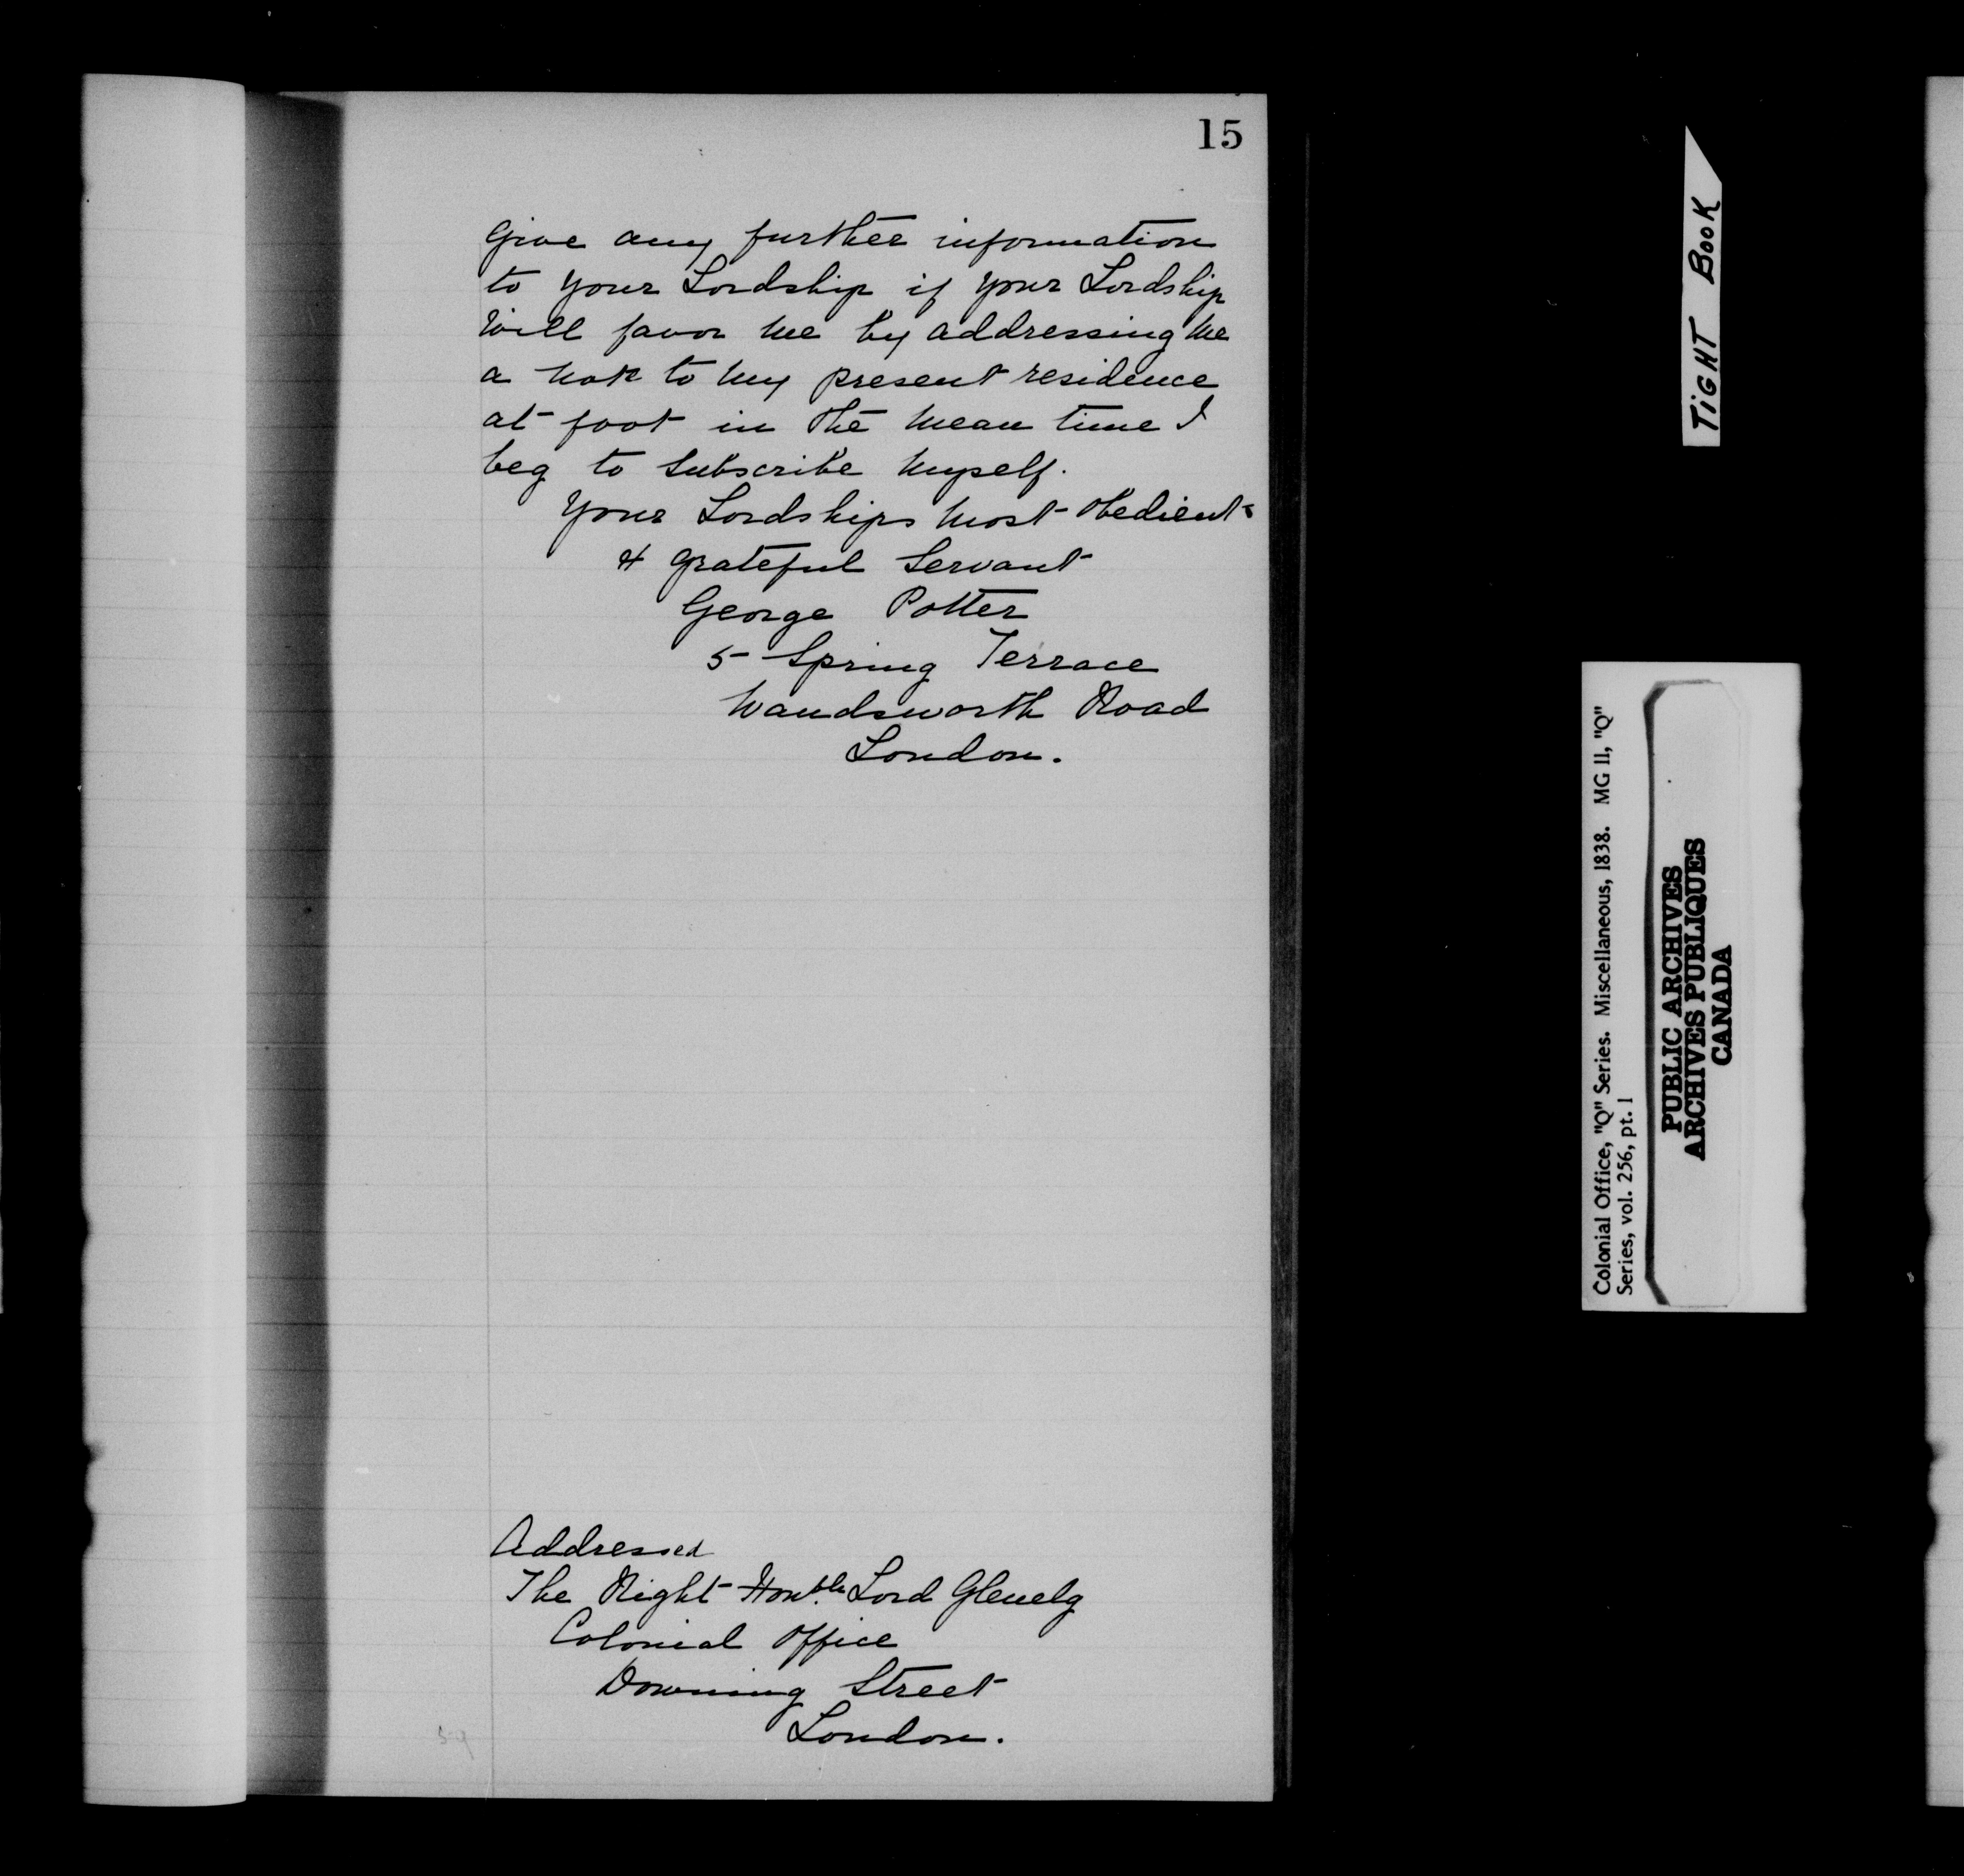 15
give any further information
to your Lordship if your Lordship
will favor me by addressing me
a note to my present residence
at foot in the mean time I
beg to subscribe myself.
Your Lordships most obedient
& grateful Servant
George Potter
5 Spring Terrace
Wandsworth Road
London.
Addressed
The Right Honble. Lord Glenelg
Colonial Office
Downing Street
London.
TIGHT BOOK
Colonial Office, "Q" Series. Miscellaneous, 1838. MG 11, "Q"
Series, vol. 256, pt. 1
PUBLIC ARCHIVES
ARCHIVES PUBLIQUES
CANADA